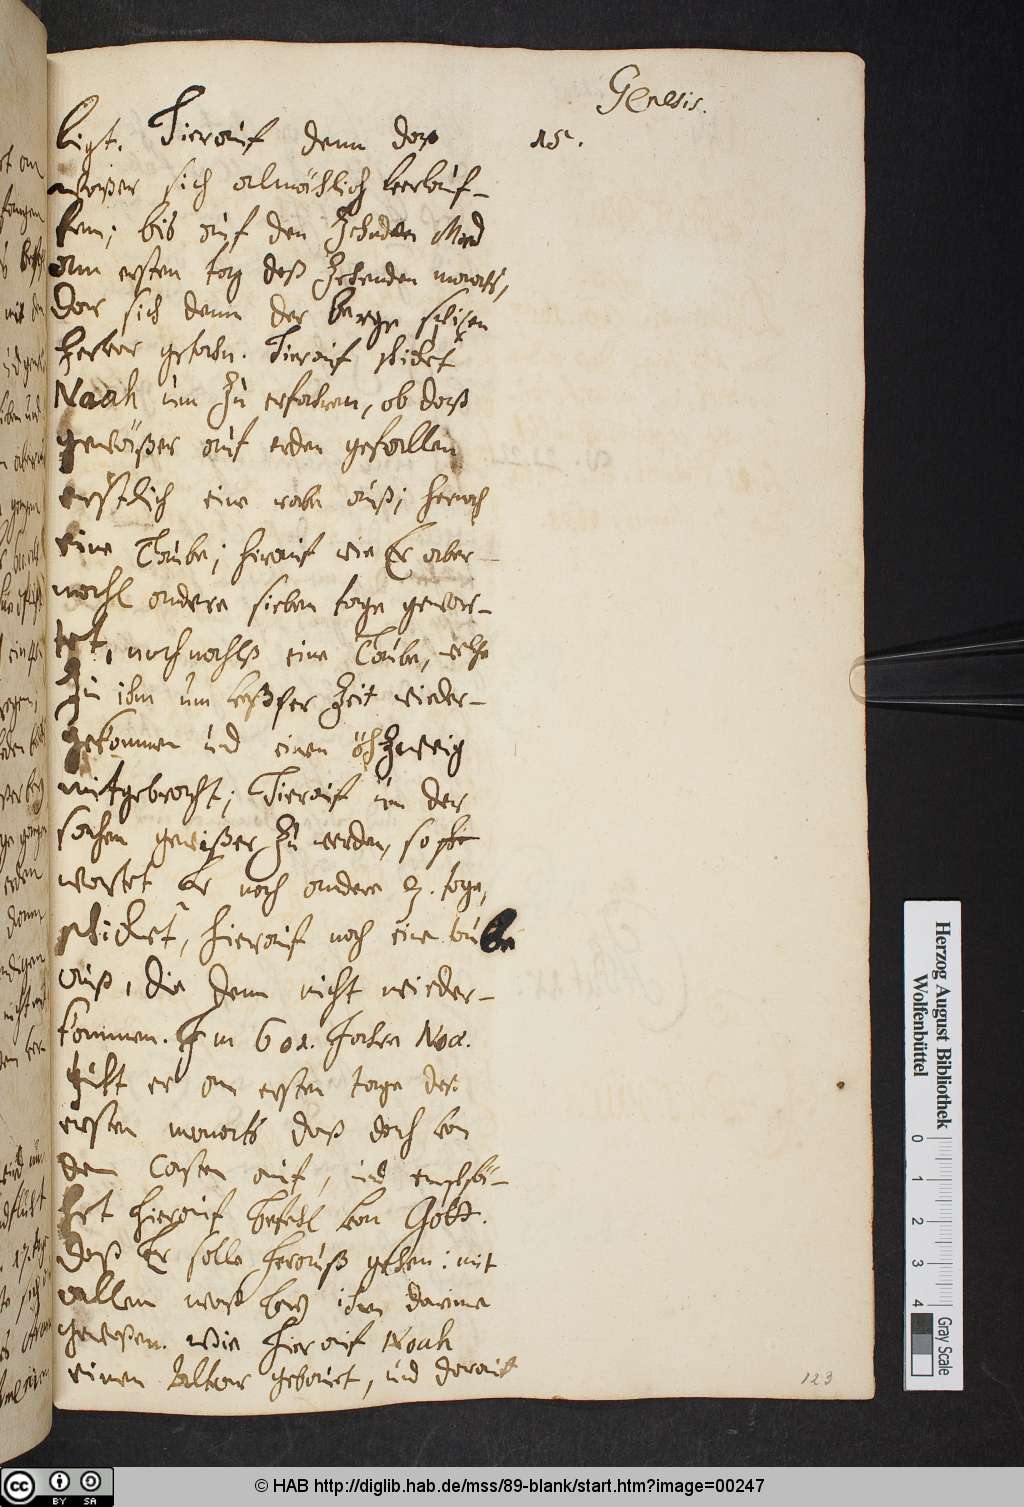 Genesis.
15.
ligt. Hierauf denn daß
waßer sich almählich verlauf-
fen; bis auf den Zehnden Mond
am ersten tag deß Zehenden monats,
dar sich denn der berge spitzen
herbor gethan. Hierauf schicket
Noah um zu erfahren, ob daß
gewäßer auf erden gefallen
erstlich eine rabe auß; hernach
eine Taube; hierauf wie Er aber-
mahl andere sieben tage gewar-
tet, nochmahlß eine Taube, welche
zu ihm um vesper Zeit wieder-
gekommen und einen öhlzweig
mitgebracht; Hierauf um der
sachen gewißer zu werden, so
wartet Er noch andere 7. tage,
schicket, hierauf noch eine taube
auß, die denn nicht wieder-
kommen. Im 601. Jahre Noæ.
thut er am ersten tage des
ersten monarts daß dach von
dem Casten auf, und empfä-
het hierauf befehl von Gott.
daß Er solle herauß gehen: mit
allem waß bey ihm darinne
geweßen. Wie hierauf Noah
einen Altar gebauet, und darauf
123
Herzog August Bibliothek
Wolfenbüttel
0 1 2 3 4
Gray Scale
cc BY SA
© HAB http://diglib.hab.de/mss/89-blank/start.htm?image=00247